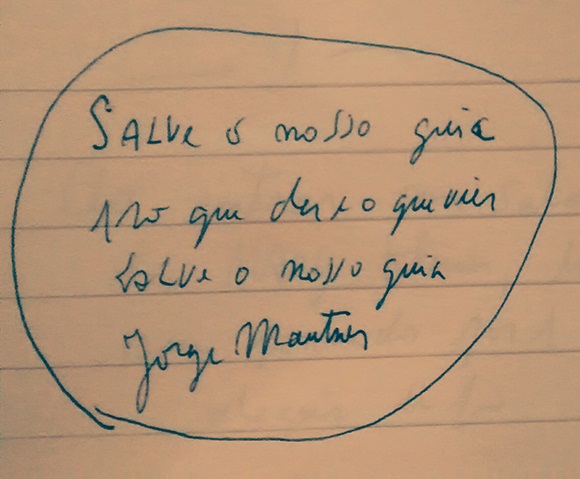 Salve o nosso guia
que der e o que vier
Salve o nosso guia
Jorge Mautner